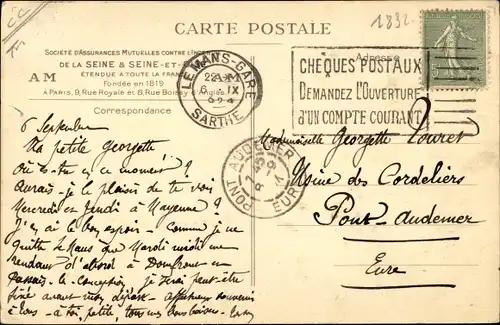 CARTE POSTALE
1832
SOCIÉTÉ D'ASSURANCES MUTUELLES CONTRE L'INCEN
DE LA SEINE & SEINE-ET-
AM ÉTENDUE A TOUTE LA FRAN
Fondée en 1819
A PARIS, 9, Rue Royale et 8, Rue Boissy d'Anglas
Correspondance
Adresse
LE MANS-GARE
6 IX
SARTHE
CHEQUES POSTAUX
DEMANDEZ L'OUVERTURE
d'UN COMPTE COURANT
PONT-AUDEMER
EURE
6 Septembre
Ma petite Georgette
Où es-tu en ce moment ?
Aurais-je le plaisir de te voir
Mercredi et Jeudi à Mayenne ?
J'en ai le bon espoir - Comme je ne
quitte le Mans que Mardi midi me
rendant d'abord à Domfront en
Passais - la Conception, je serai peut-être
fixé avant mon départ - Affectueux souvenirs
à tous - à toi, petite, tous mes bons baisers -
Mademoiselle Georgette
Usine des Cordeliers
Pont-Audemer
Eure